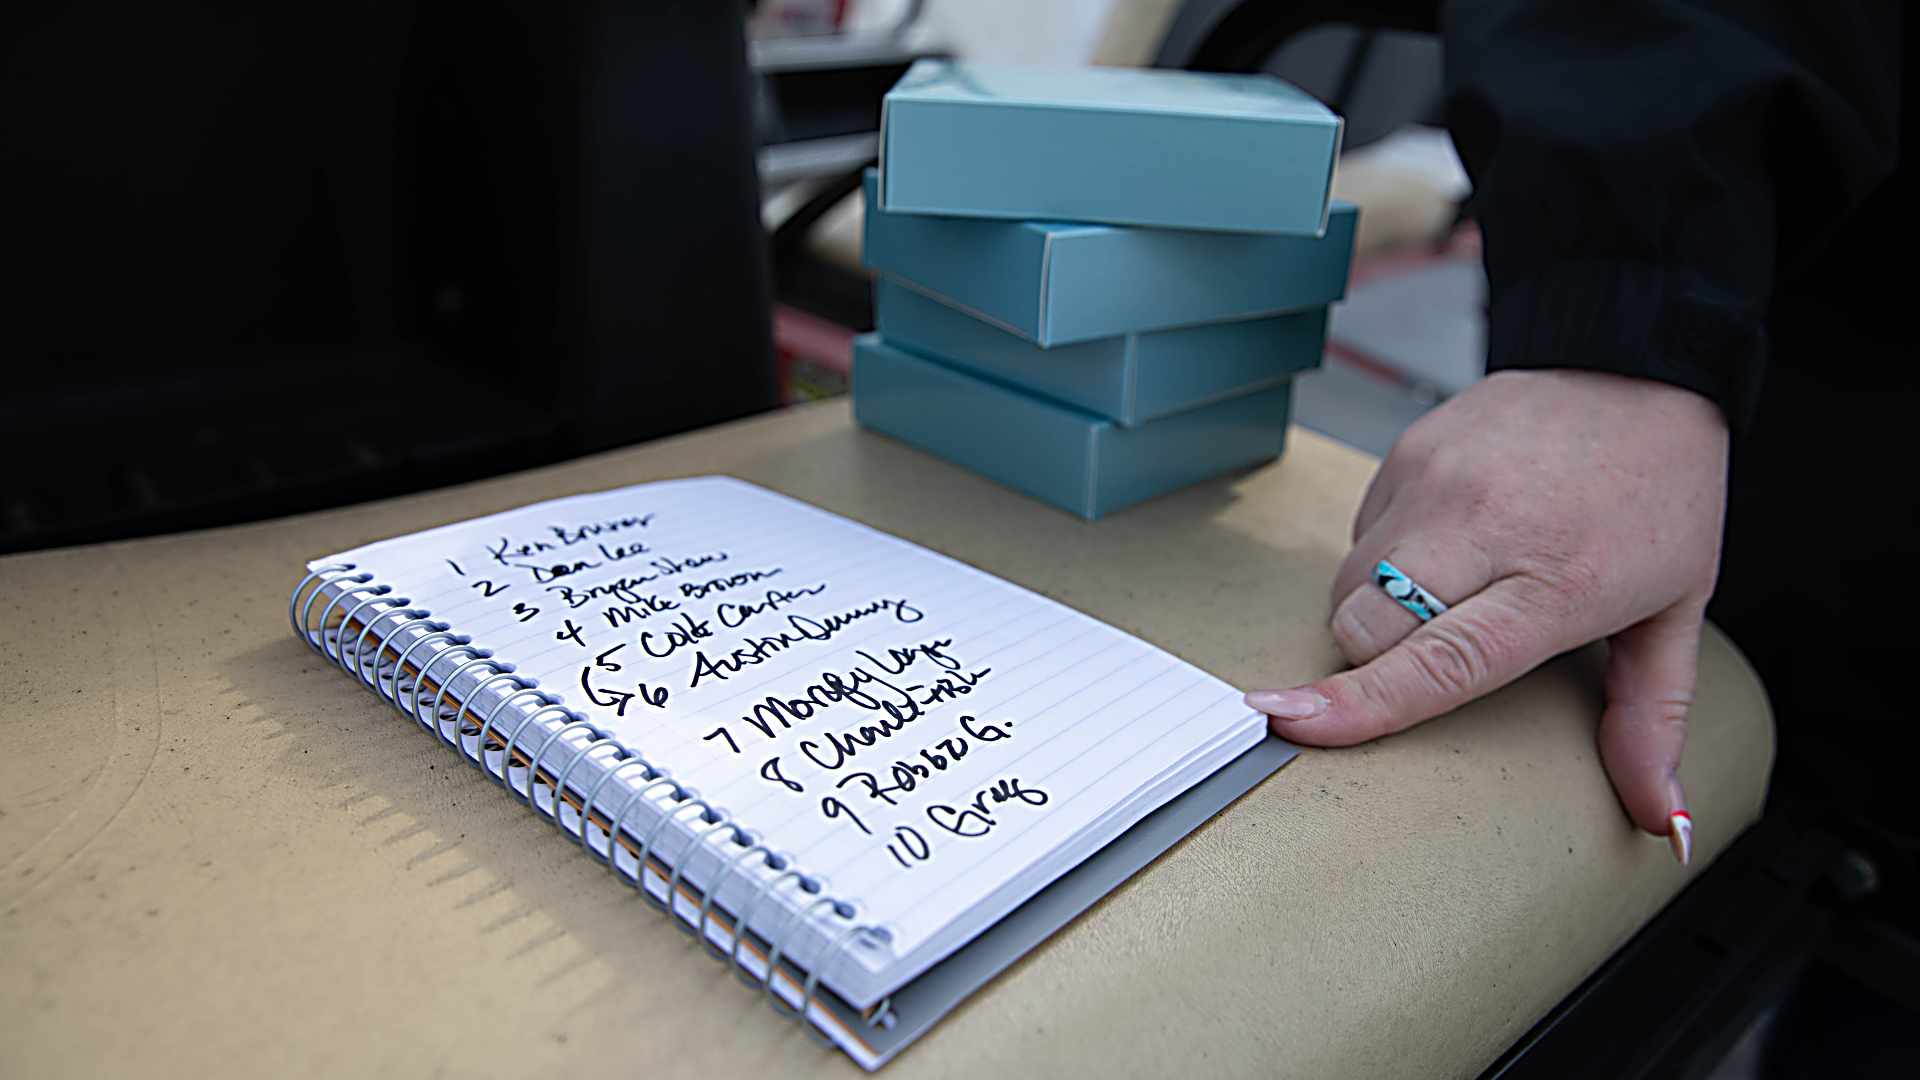 1 Ken Bruner
2 Dan Lee
3 Bryan Shaw
4 Mike Brown
5 Cole Carter
6 Austin Denny
7
8 Charlie
9 Robbie G.
10 Greg